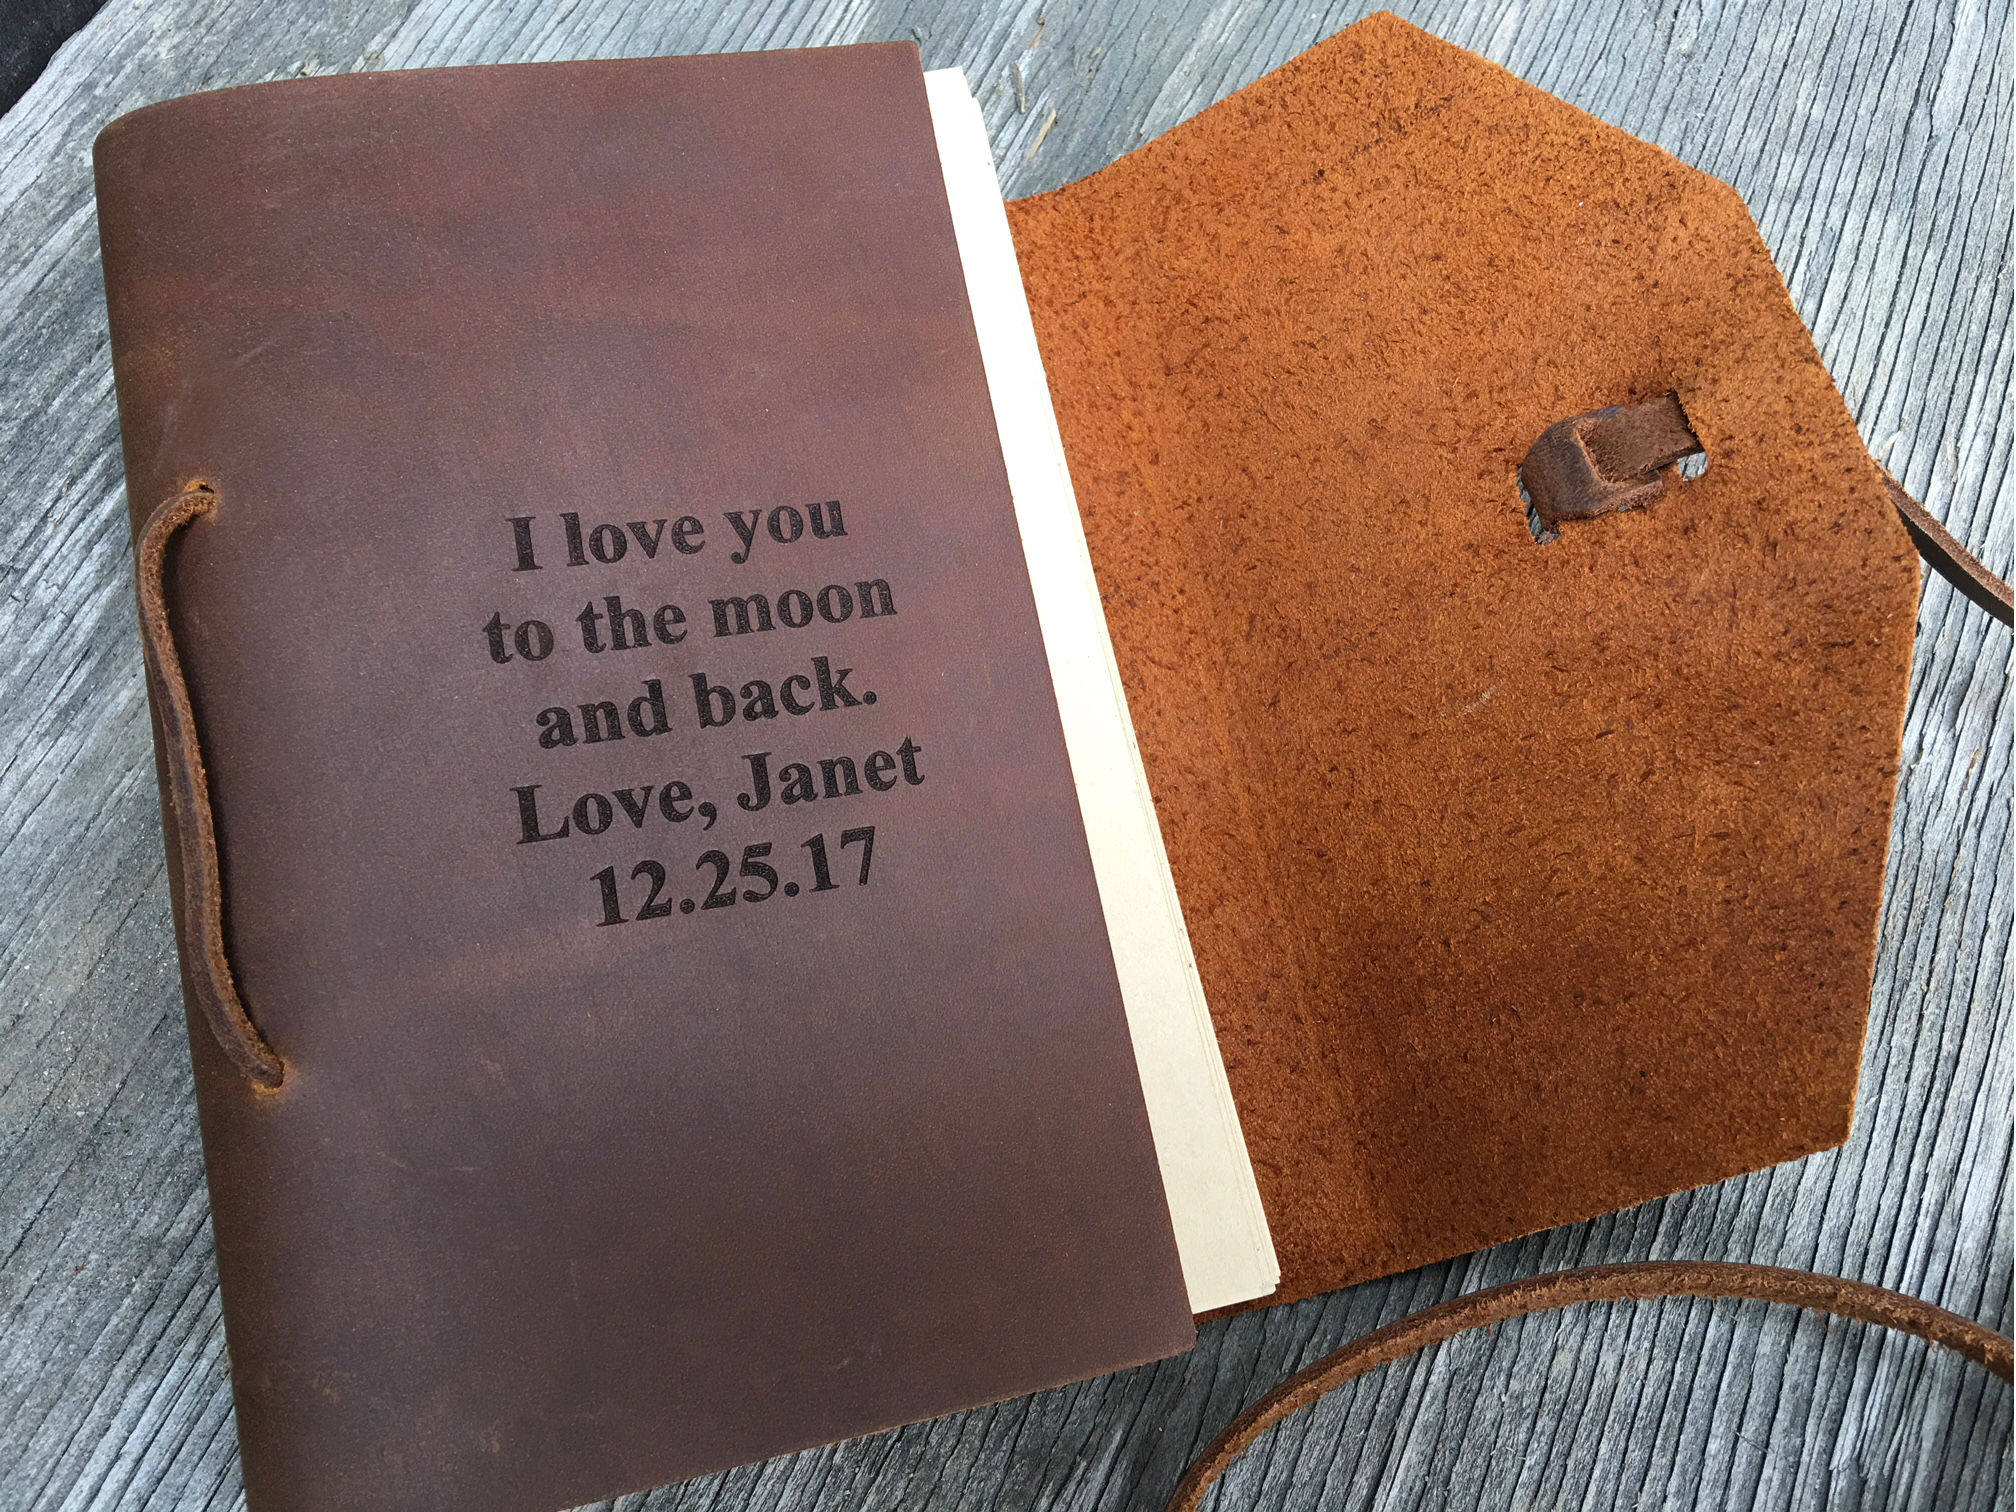 I love you
to the moon
and back.
Love, Janet
12.25.17